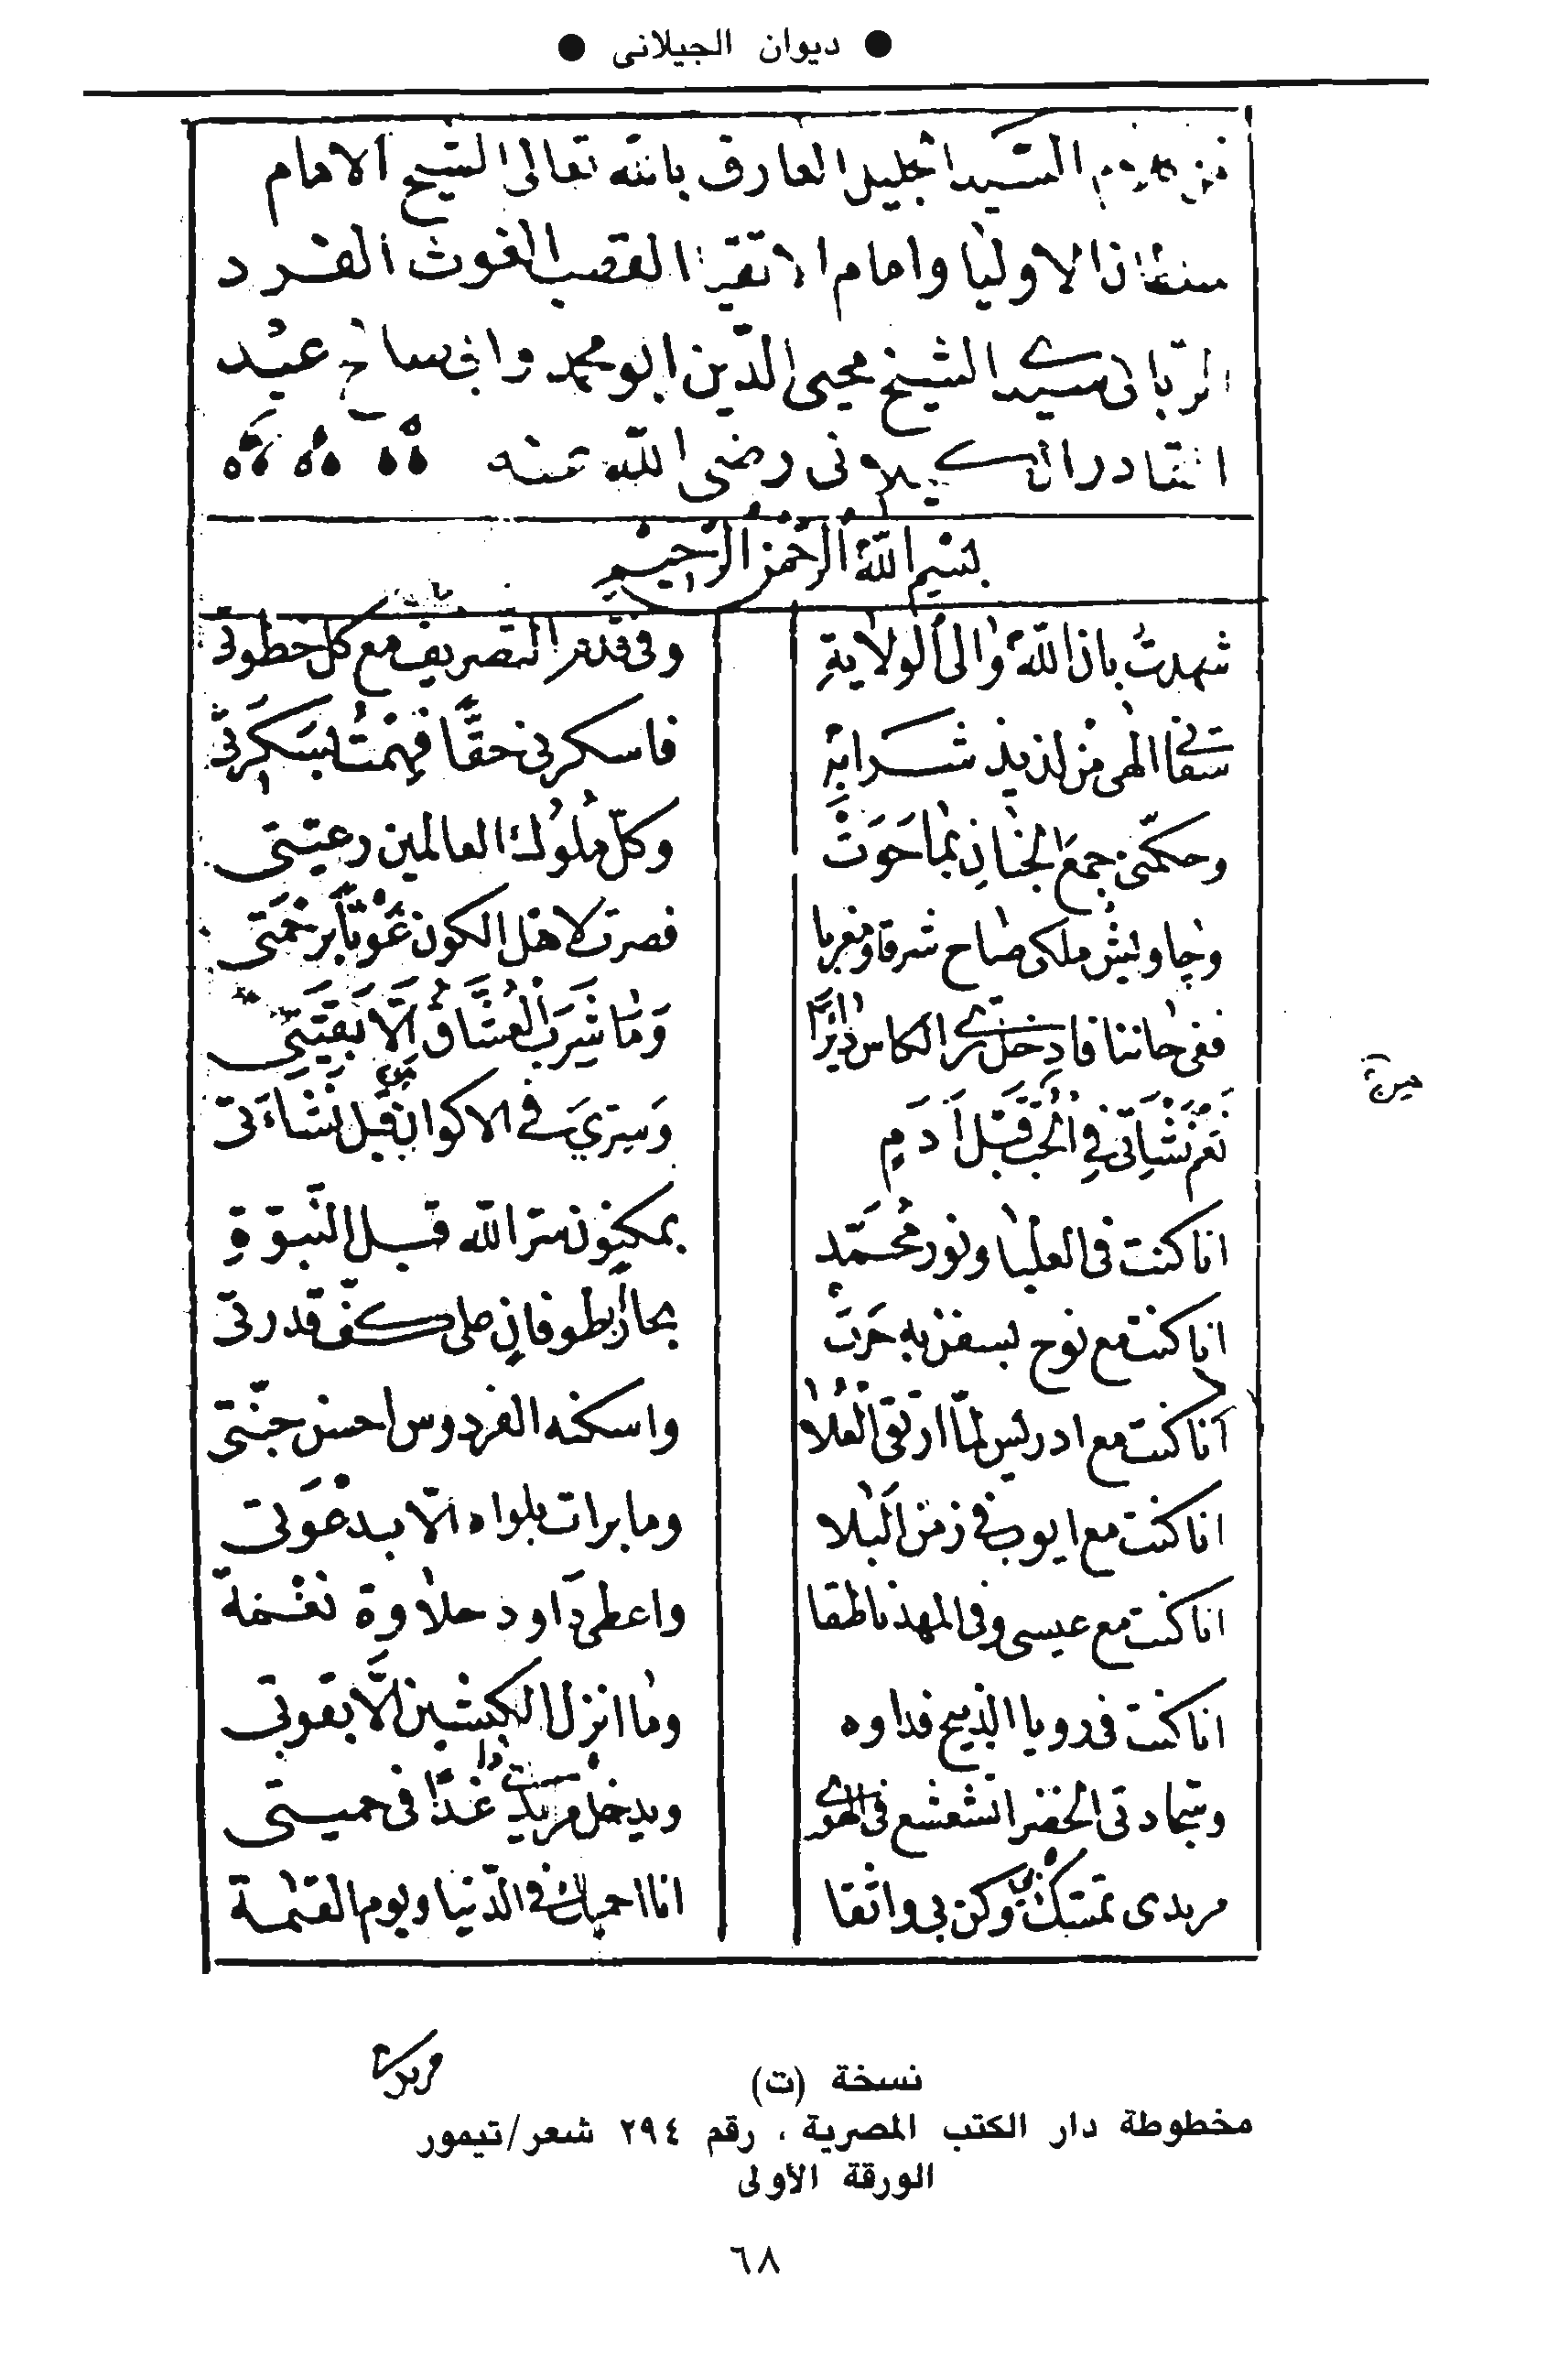 ● ديوان الجيلانى ●
من كلام السيد الجليل العارف بالله تعالى الشيخ الامام
سلطان الاوليا وامام الاتقيا القطب الغوث الفرد
الربانى سيدى الشيخ محيى الدين ابو محمد وابى صالح عبد
القادر الكيلانى رضى الله عنه
بسم الله الرحمن الرحيم
شهدت بان الله والى الولاية وفى قدم التصريف مع كل خطوتى
سقانى الهى من لذيذ شرابه فاسكرنى حقا فهمت بسكرتى
وحكمنى جمع الجنان بما حوت وكل ملوك العالمين رعيتى
وجاوليش ملكى صاح شرقا ومغربا فصرت لاهل الكون غوثا برحمتى
ففى حاننا فادخل ترى الكاس دائرا وما شرب العشاق الا بقيتى
نعم نشاتى فى الحب قبل آدم وسرى فى الاكوان من قبل نشاءتى
انا كنت فى العليا ونور محمد بمكنون سر الله قبل النبوة
انا كنت مع نوح بسفن به جرت بحار بطوفان على كف قدرتى
انا كنت مع ادريس لما ارتقى العلا واسكنه الفردوس احسن جنتى
انا كنت مع ايوب فى زمن البلا وما برات بلواه الا بدعوتى
انا كنت مع عيسى وفى المهد ناطقا واعطى داود حلاوة نغمة
انا كنت فى رويا الذبيح فداوه وما انزل الكبشين الا بقوتى
وسجادتى الخضر اتشعشع فى الهوى ويدخل مريدى غدا فى حميتى
مريدى تمسك بى وكن بى واثقا انا احميك فى الدنيا ويوم القيمة
مريدى
نسخة (ت)
مخطوطة دار الكتب المصرية ، رقم ٢٩٤ شعر/تيمور
الورقة الأولى
٦٨